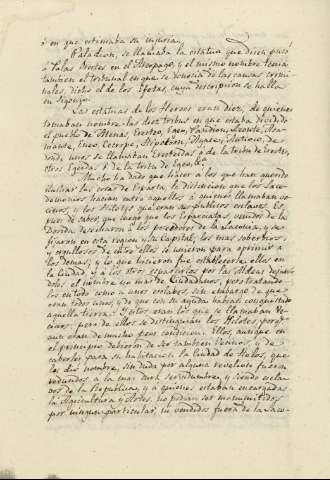 ó en que estrivaba su injuria.
Paladion, se llamaba la estatua que dicen puso
á Palas Orestes en el Areopago, y el mismo nombre tenia
tambien el tribunal en que se conocia de las causas crimi-
nales, dichos el de los Efetas, cuya descripcion se halla
en Sigonio.
Las estatuas de los Heroes eran diez, de quienes
tomaban nombre las diez tribus en que estaba dividido
el pueblo de Atenas, Erecteo, Egeo, Pandion, Leonte, Aca-
mante, Eneo, Cecrope, Hipotoon, Ayace, Antioco, de
donde unos se llamaban Erectidas ó de la tribu de Erecteo,
otros Egeida ó de la tribu de Egeo &c.
Mucho ha dado que hacer a los que han querido
ilustrar las cosas de Esparta, la distincion que los Lace-
demonios hacian entre aquellos á quienes llamaban ve-
cinos, y los Hilotes que eran sus publicos esclavos. Es
pues de saber, que luego que los Esparciatas, venidos de la
Dorida desecharon á los poseedores de la Laconia, y se
fijaron en esta region y su Capital; los mas soberbios,
y orgullosos de entre ellos se unieron para oprimir a
los demas, y lo que hicieron fue establecerse ellos en
la Ciudad, y á los otros esparcirlos por las Aldeas dejando-
doles el nombre no mas de Ciudadanos, pero tratando-
los en todo como a unos esclavos, sin embargo de que
eran todos unos, y de que con su ayuda habian conquistado
aquella tierra. Y estos eran los que se llamaban Ve-
cinos; pero de ellos se distinguian los Hilotes, porq.
aun eran de mucho peor condicion. Ellos, aunque en
el principio debieron de ser tambien Vecinos, y de
caberles para su habitacion la Ciudad de Helos, que
les dió nombre, sin duda por alguna revelion fueron
reducidos a la mas dura servidumbre, y siendo escla-
vos de la Republica, y a quienes estaban encargadas
la Agricultura y Artes, no podian ser manumitidos
por ningun particular, ni vendidos fuera de la Laco-